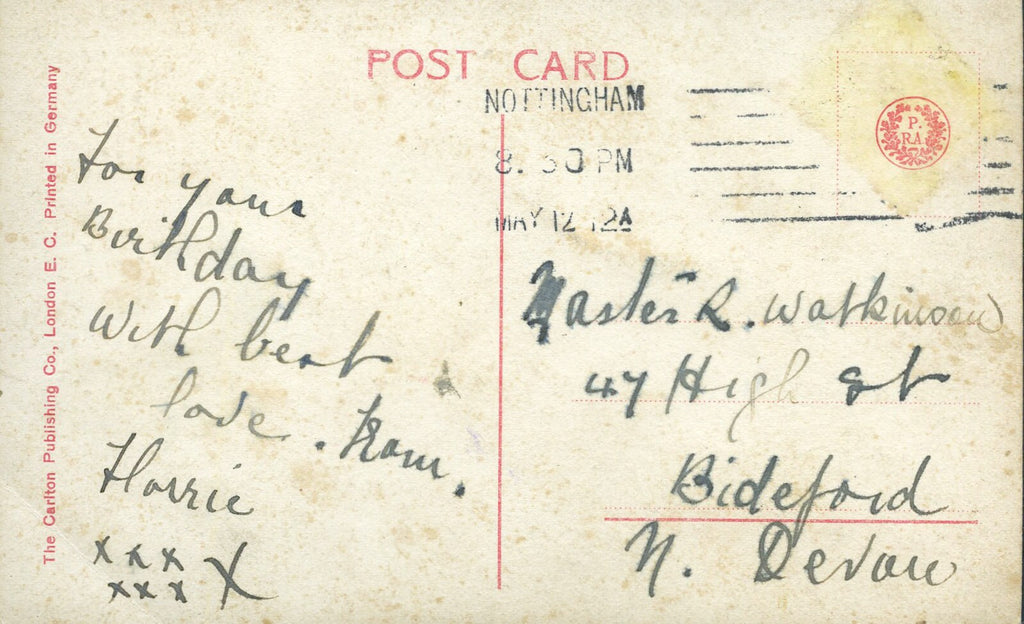 POST CARD
NOTTINGHAM
8. 30 PM
MAY 12 12A
P.
RA.
The Carlton Publishing Co., London E. C. Printed in Germany
For your
Birthday
With best
love. From.
Horrie
x x x
x x x X
Master R. Watkinson
47 High St
Bideford
N. Devon